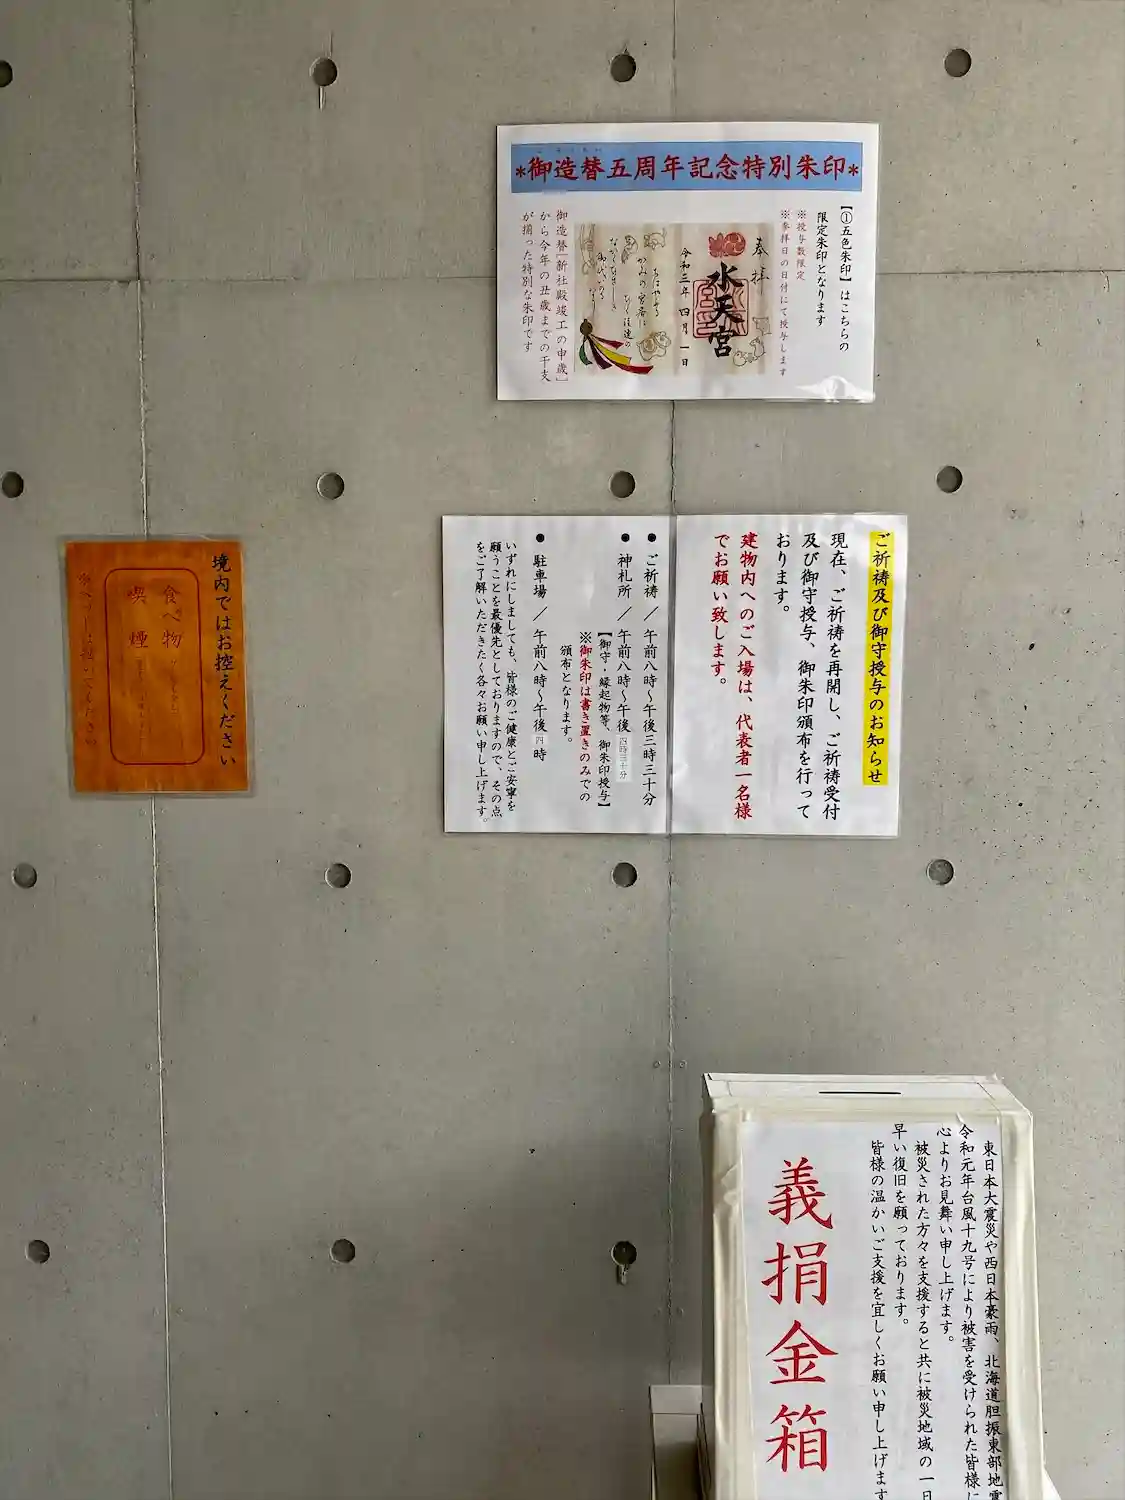 *御造替五周年記念特別朱印*
【①五色朱印】はこちらの
限定朱印となります
※授与数限定
※参拝日の日付にて授与します
奉拝
水天宮
令和三年 四月 一日
御造替[新社殿竣工の申歳]
から今年の丑歳までの干支
が揃った特別な朱印です
ご祈祷及び御守授与のお知らせ
現在、ご祈祷を再開し、ご祈祷受付
及び御守授与、御朱印頒布を行って
おります。
建物内へのご入場は、代表者一名様
でお願い致します。
●ご祈祷／午前八時~午後三時三十分
●神札所／午前八時~午後四時三十分
【御守・縁起物等、御朱印授与】
※御朱印は書き置きのみでの
頒布となります。
●駐車場／午前八時~午後四時
いずれにしましても、皆様のご健康とご安寧を
願うことを最優先としておりますので、その点
をご了解いただきたく各々お願い申し上げます。
境内ではお控えください
食べ物
喫煙
東日本大震災や西日本豪雨、北海道胆振東部地震
令和元年台風十九号により被害を受けられた皆様に
心よりお見舞い申し上げます。
被災された方々を支援すると共に被災地域の一日
早い復旧を願っております。
皆様の温かいご支援を宜しくお願い申し上げます
義捐金箱